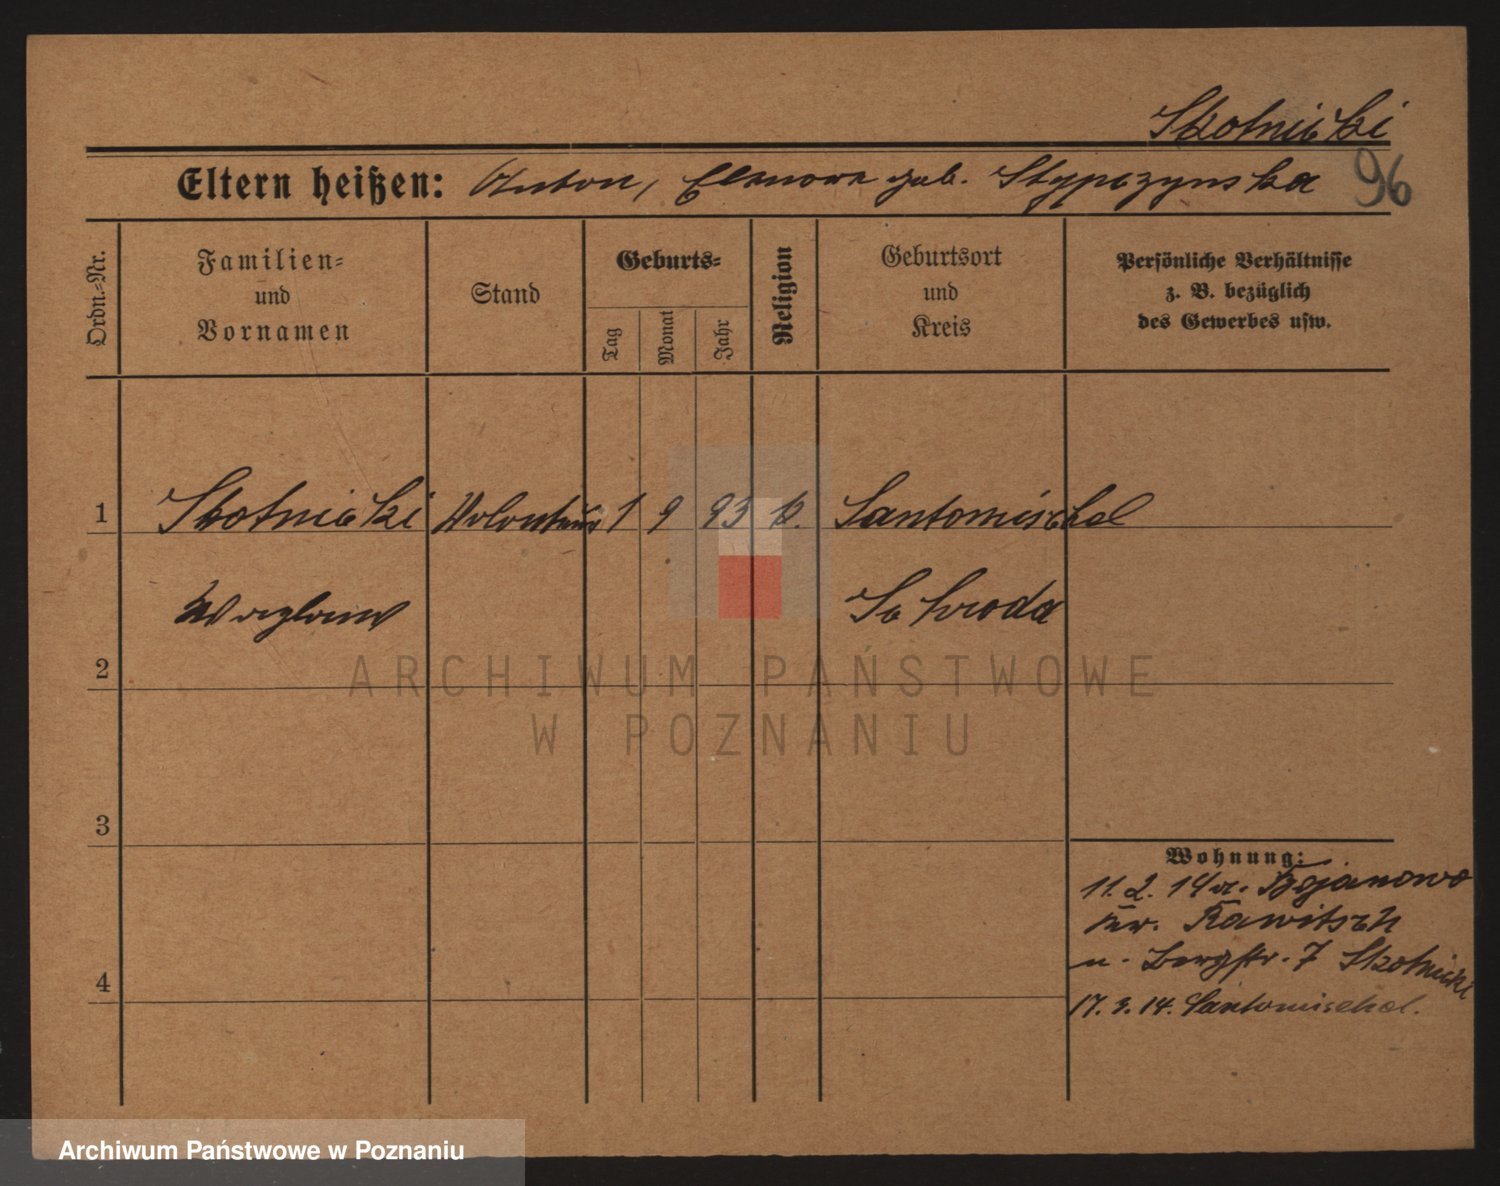 Skotnicki
Eltern heißen: Anton, Elenora geb. Stypczynska 96
Ordn.-Nr.
Familien-
und
Vornamen
Stand
Geburts-
Tag
Monat
Jahr
Religion
Geburtsort
und
Kreis
Persönliche Verhältnisse
z. B. bezüglich
des Gewerbes usw.
1 Skotnicki Volontär 1 9 93 k. Santomischel
Schroda
2
3
4
Wohnung:
11. 2. 14 a. Bojanowo
Kr. Rawitsch
n. Bergstr. 7 Skotnicki
17. 3. 14. Santomischel.
ARCHIWUM PAŃSTWOWE
W POZNANIU
Archiwum Państwowe w Poznaniu